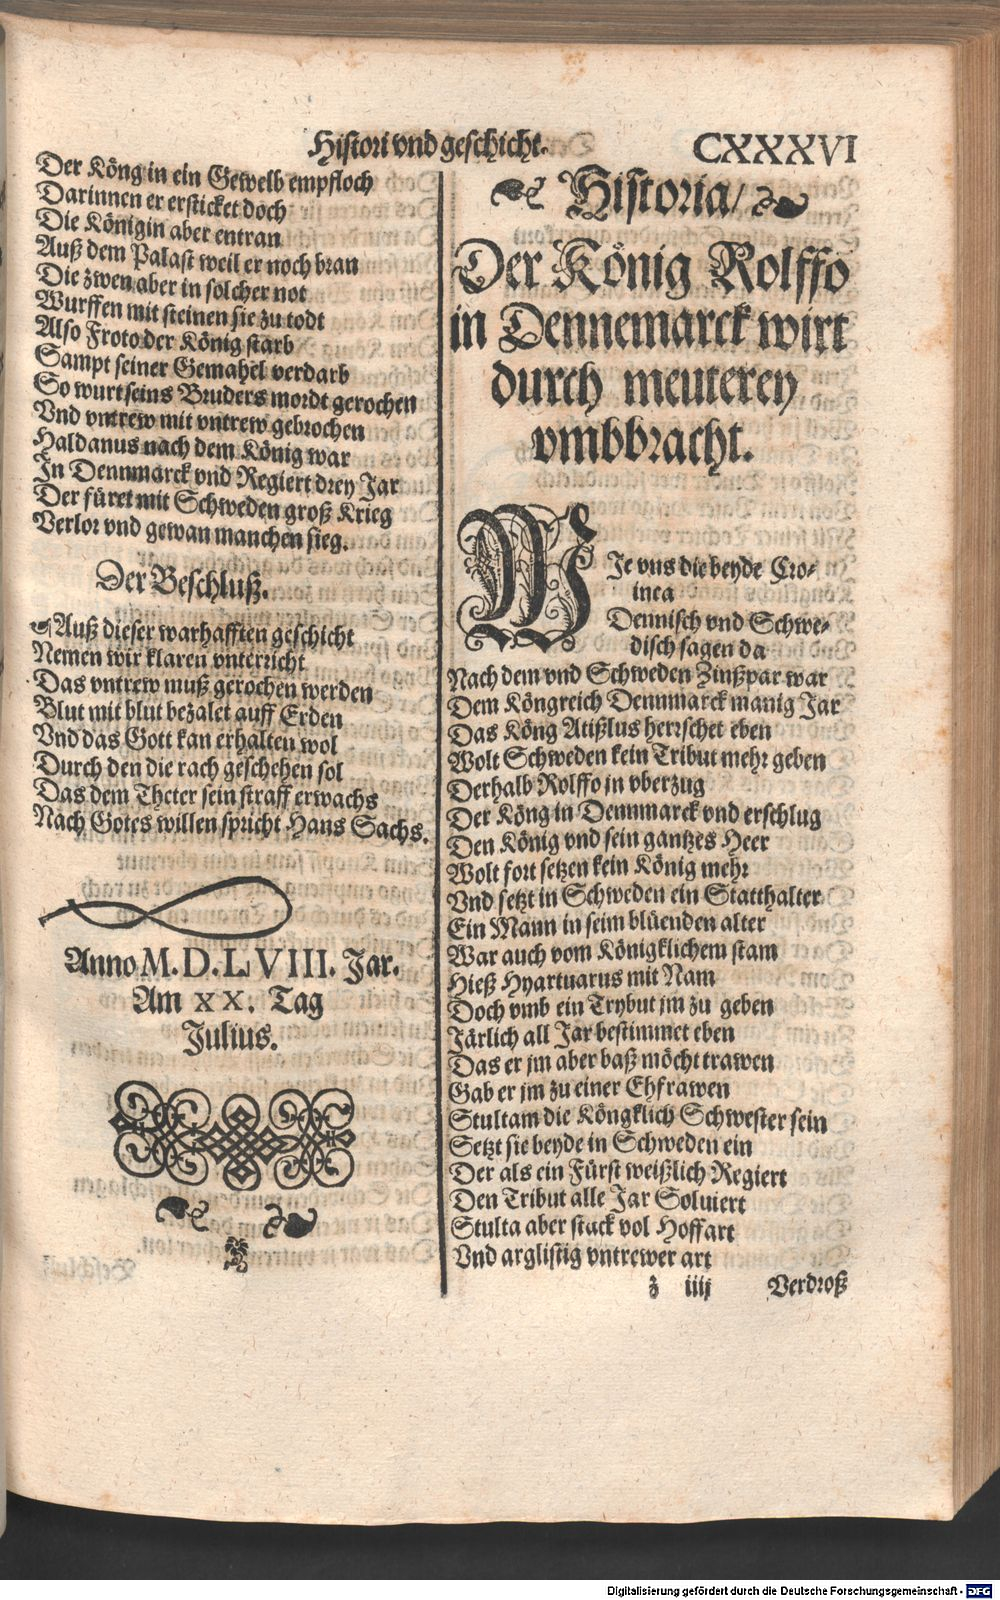 Histori vnd geschicht.
CXXXVI
Der Köng in ein Gewelb empfloch
Darinnen er ersticket doch
Die Königin aber entran
Auß dem Palast weil er noch bran
Die zwen aber in solcher not
Wurffen mit steinen sie zu todt
Also Froto der König starb
Sampt seiner Gemahel verdarb
So wurt seins Bruders mordt gerochen
Vnd vntrew mit vntrew gebrochen
Haldanus nach dem König war
In Dennmarck vnd Regiert drey Jar
Der füret mit Schweden groß Krieg
Verlor vnd gewan manchen sieg.
Der Beschluß.
Auß dieser warhafften geschicht
Nemen wir klaren vnterricht
Das vntrew muß gerochen werden
Blut mit blut bezalet auff Erden
Vnd das Gott kan erhalten wol
Durch den die rach geschehen sol
Das dem Theter sein straff erwachs
Nach Gotes willen spricht Hans Sachs.
Anno M.D.LVIII. Jar.
Am XX. Tag
Julius.
Historia/
Der König Rolffo
in Dennemarck wirt
durch meuterey
vmbbracht.
WIe vns die beyde Cro-
inca
Dennisch vnd Schwe-
disch sagen da
Nach dem vnd Schweden Zinßpar war
Dem Köngreich Dennmarck manig Jar
Das Köng Atißlus herrschet eben
Wolt Schweden kein Tribut mehr geben
Derhalb Rolffo jn vberzug
Der Köng in Dennmarck vnd erschlug
Den König vnd sein gantzes Heer
Wolt fort setzen kein König mehr
Vnd setzt in Schweden ein Statthalter
Ein Mann in seim blüenden alter
War auch vom Königklichem stam
Hieß Hyartuarus mit Nam
Doch vmb ein Trybut jm zu geben
Järlich all Jar bestimmet eben
Das er jm aber baß möcht trawen
Gab er jm zu einer Ehfrawen
Stultam die Köngklich Schwester sein
Setzt sie beyde in Schweden ein
Der als ein Fürst weißlich Regiert
Den Tribut alle Jar Soluiert
Stulta aber stack vol Hoffart
Vnd arglistig vntrewer art
z iiij
Verdroß
Digitalisierung gefördert durch die Deutsche Forschungsgemeinschaft - DFG